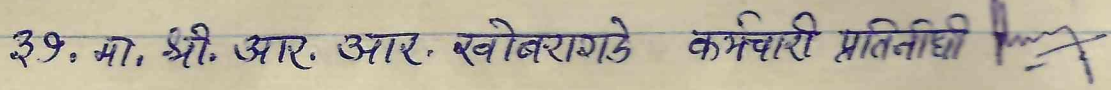 ३१. मा. श्री. आर. आर. खोबरागडे कर्मचारी प्रतिनीधी